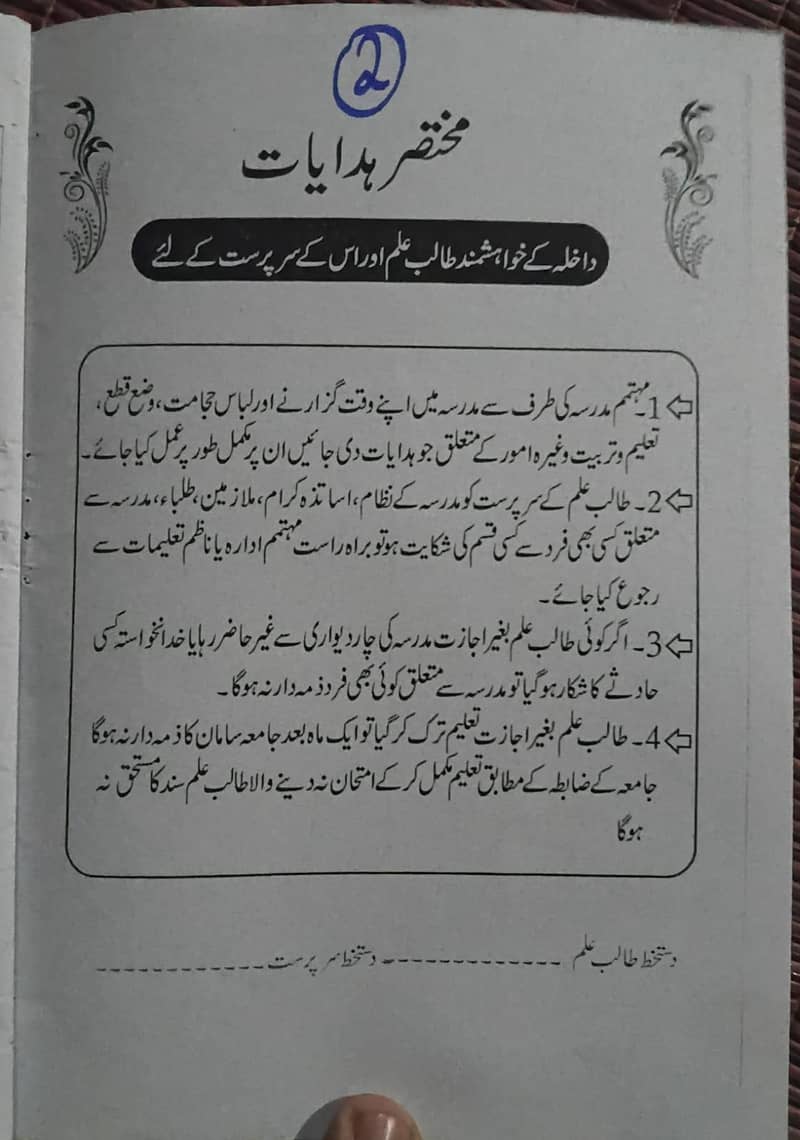 2
مختصر ہدایات
داخلہ کے خواہشمند طالب علم اور اس کے سرپرست کے لئے
1۔ مہتمم مدرسہ کی طرف سے مدرسہ میں اپنے وقت گزارنے اور لباس حجامت، وضع قطع،
تعلیم و تربیت وغیرہ امور کے متعلق جو ہدایات دی جائیں ان پر مکمل طور پر عمل کیا جائے۔
2۔ طالب علم کے سرپرست کو مدرسہ کے نظام، اساتذہ کرام، ملازمین، طلباء، مدرسہ سے
متعلق کسی بھی فرد سے کسی قسم کی شکایت ہو تو براہ راست مہتمم ادارہ یا ناظم تعلیمات سے
رجوع کیا جائے۔
3۔ اگر کوئی طالب علم بغیر اجازت مدرسہ کی چار دیواری سے غیر حاضر رہا یا خدانخواستہ کسی
حادثے کا شکار ہو گیا تو مدرسہ سے متعلق کوئی بھی فرد ذمہ دار نہ ہوگا۔
4۔ طالب علم بغیر اجازت تعلیم ترک کر گیا تو ایک ماہ بعد جامعہ سامان کا ذمہ دار نہ ہوگا
جامعہ کے ضابطہ کے مطابق تعلیم مکمل کر کے امتحان نہ دینے والا طالب علم سند کا مستحق نہ
ہوگا
دستخط طالب علم ------------- دستخط سرپرست -------------